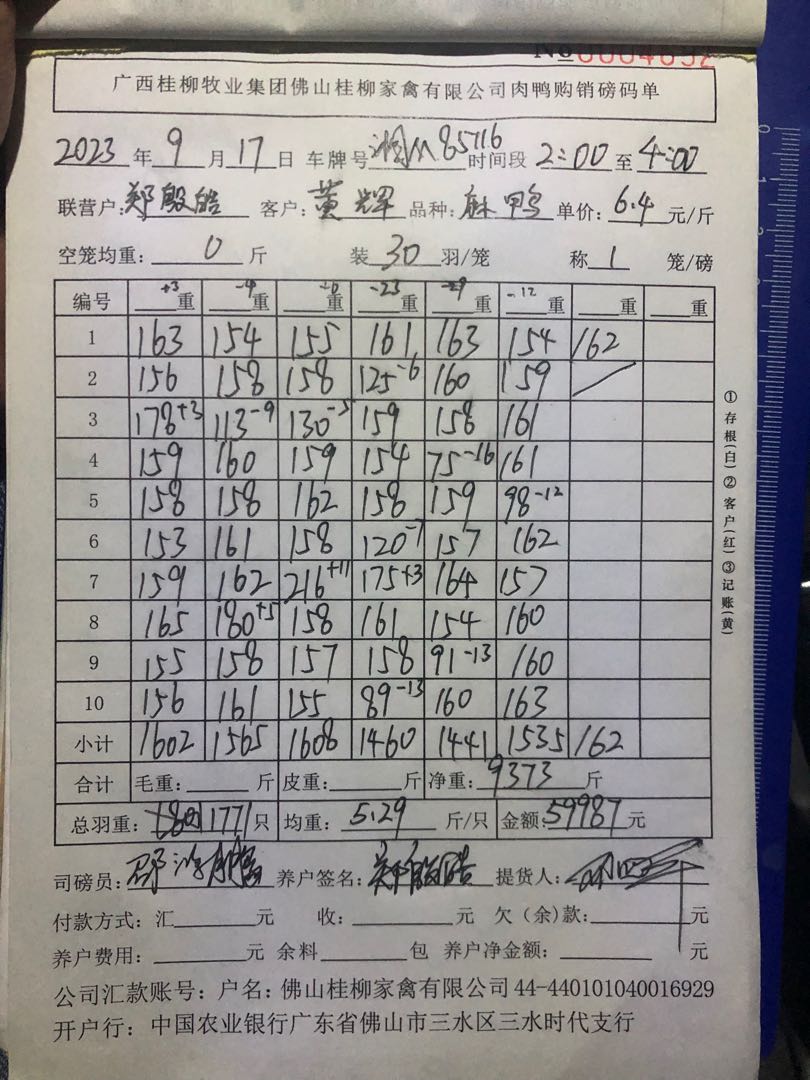 No 0004692
广西桂柳牧业集团佛山桂柳家禽有限公司肉鸭购销磅码单
2023 年 9 月 17 日 车牌号 85116 时间段 2:00 至 4:00
联营户: 郑殷皓 客户: 黄辉 品种: 麻鸭 单价: 6.4 元/斤
空笼均重: 0 斤 装 30 羽/笼 称 1 笼/磅
编号 +3 重 -4 重 重 -23 重 -29 重 -12 重 重 重
1 163 154 155 161 163 154 162
2 156 158 158 125-6 160 159
3 178+3 113-9 130-5 159 158 161
4 159 160 159 154 75-16 161
5 158 158 162 158 159 98-12
6 153 161 158 120-7 157 162
7 159 162 216+11 175+3 164 157
8 165 180+5 158 161 154 160
9 155 158 157 158 91-13 160
10 156 161 155 89-13 160 163
小计 1602 1565 1608 1460 1441 1535 162
合计 毛重: 斤 皮重: 斤 净重: 9373 斤
总羽重: 1771 只 均重: 5.29 斤/只 金额: 59987 元
司磅员: 养户签名: 郑殷皓 提货人:
付款方式: 汇 元 收: 元 欠(余)款: 元
养户费用: 元 余料 包 养户净金额: 元
公司汇款账号: 户名: 佛山桂柳家禽有限公司 44-440101040016929
开户行: 中国农业银行广东省佛山市三水区三水时代支行
①存根(白)②客户(红)③记账(黄)